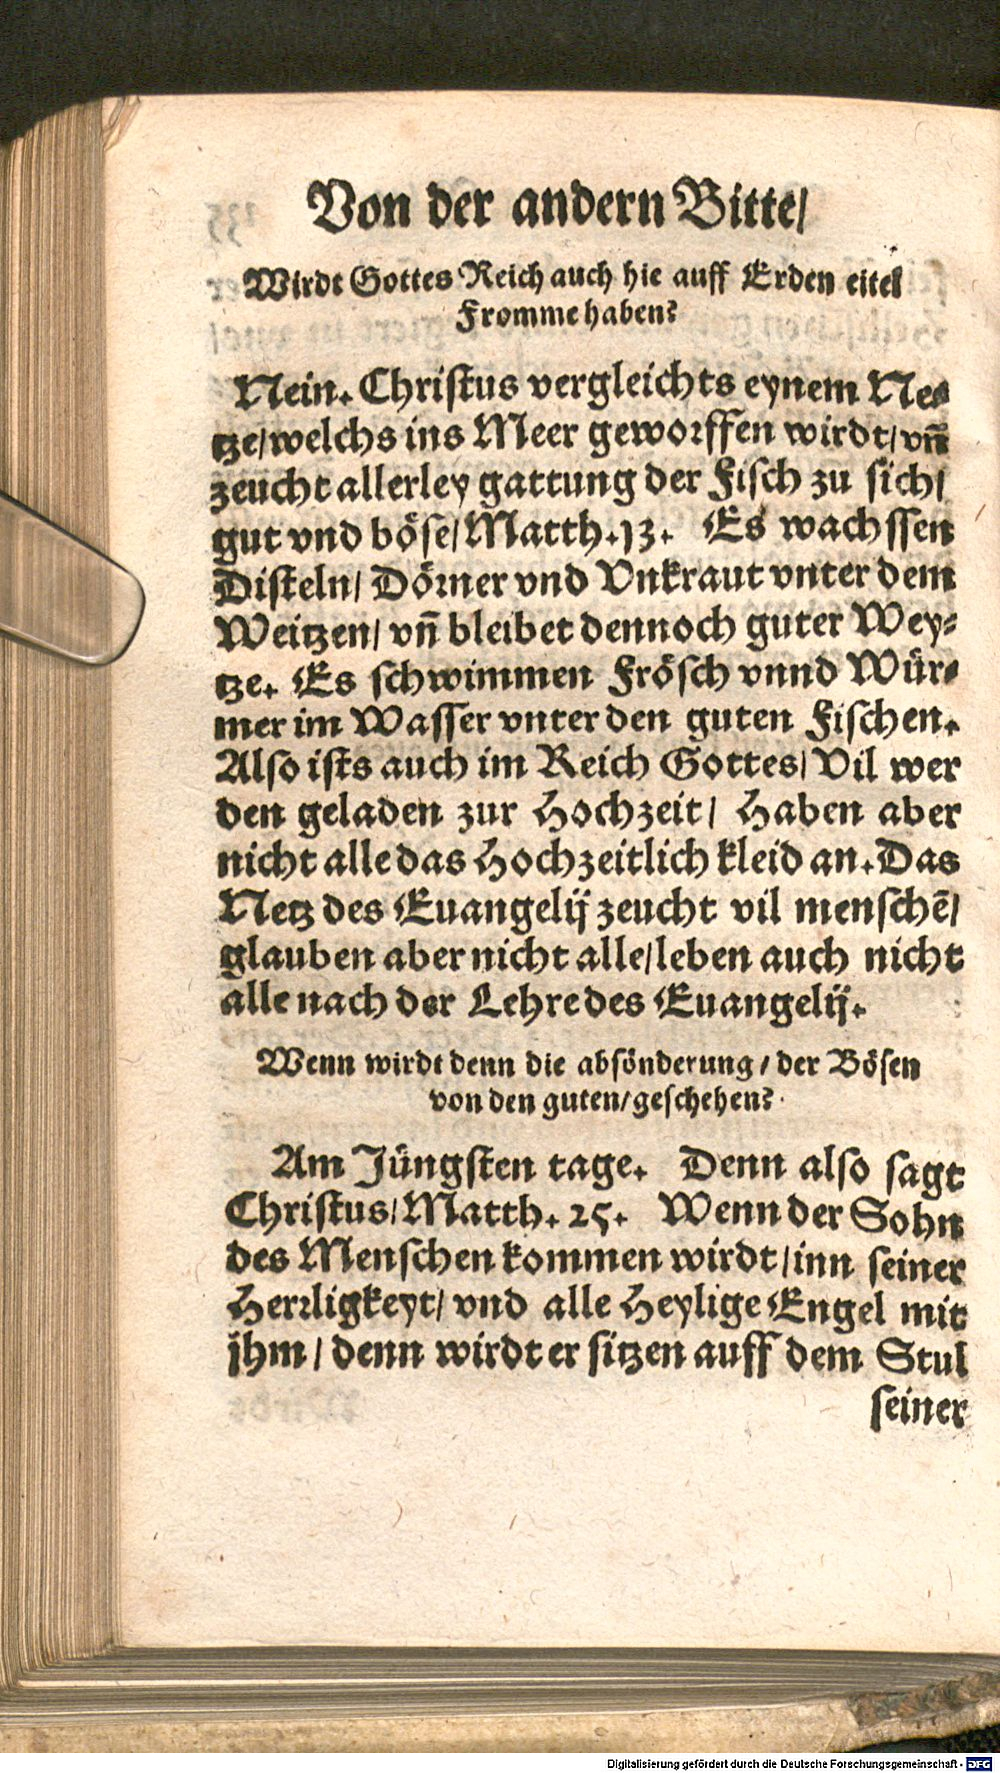 Von der andern Bitte/
Wirdt Gottes Reich auch hie auff Erden eitel
Fromme haben?
Nein. Christus vergleichts eynem Ne⸗
tze/welchs ins Meer geworffen wirdt/vñ
zeucht allerley gattung der Fisch zu sich/
gut vnd böse/Matth.13. Es wachssen
Disteln/ Dörner vnd Vnkraut vnter dem
Weitzen/ vñ bleibet dennoch guter Wey⸗
tze. Es schwimmen Frösch vnnd Wür⸗
mer im Wasser vnter den guten Fischen.
Also ists auch im Reich Gottes/ Vil wer
den geladen zur Hochzeit/ Haben aber
nicht alle das Hochzeitlich kleid an. Das
Netz des Euangelij zeucht vil menschē/
glauben aber nicht alle/leben auch nicht
alle nach der Lehre des Euangelij.
Wenn wirdt denn die absönderung/der Bösen
von den guten/geschehen?
Am Jüngsten tage. Denn also sagt
Christus/Matth. 25. Wenn der Sohn
des Menschen kommen wirdt/inn seiner
Herrligkeyt/ vnd alle Heylige Engel mit
jhm/ denn wirdt er sitzen auff dem Stul
seiner
Digitalisierung gefördert durch die Deutsche Forschungsgemeinschaft - DFG